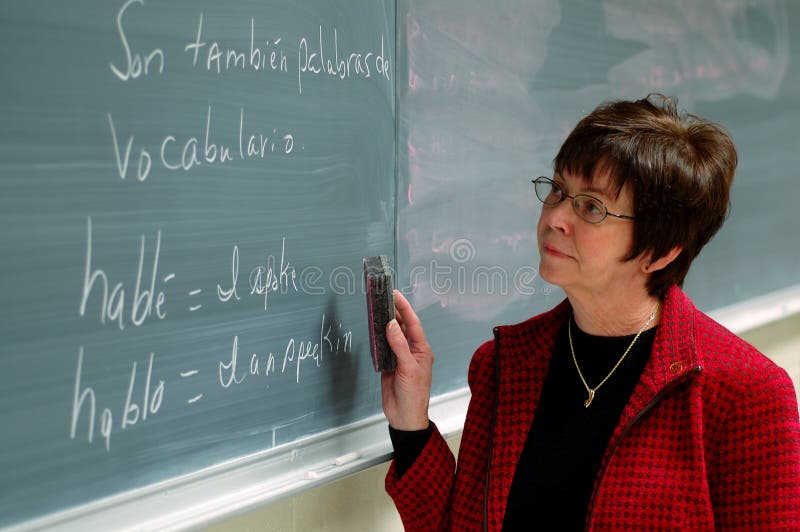 Son también palabras de
vocabulario.
hablé = I spoke
hablo = I an speakin
dreamstime